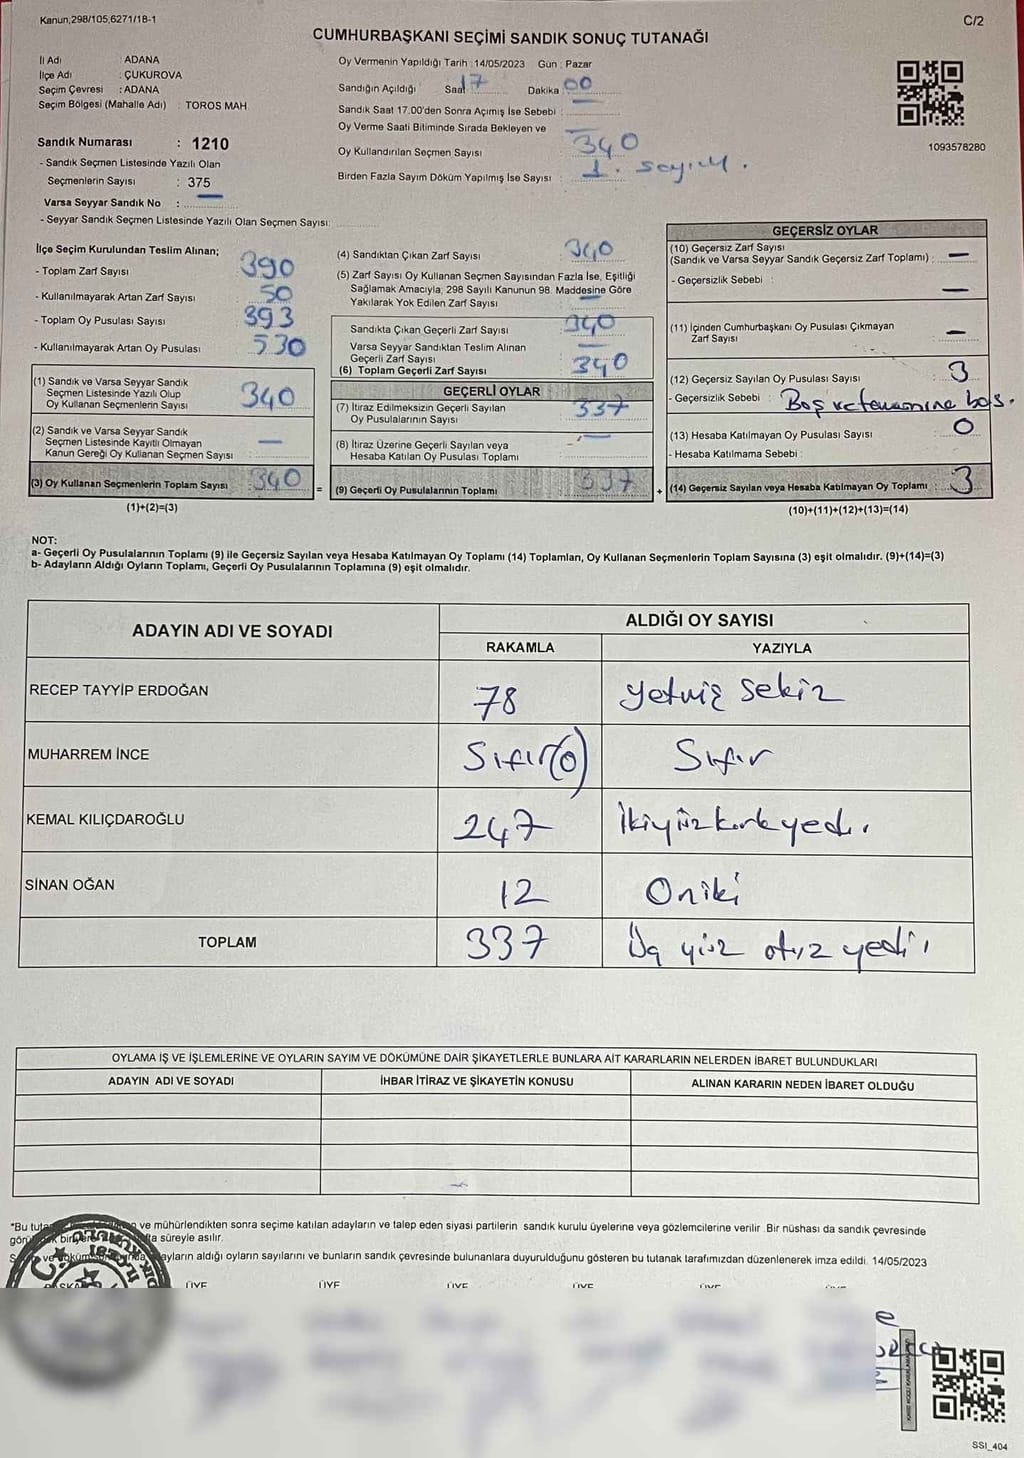 Kanun,298/105,6271/18-1
C/2
CUMHURBAŞKANI SEÇİMİ SANDIK SONUÇ TUTANAĞI
İl Adı : ADANA
İlçe Adı : ÇUKUROVA
Seçim Çevresi : ADANA
Seçim Bölgesi (Mahalle Adı) : TOROS MAH.
Sandık Numarası : 1210
- Sandık Seçmen Listesinde Yazılı Olan
Seçmenlerin Sayısı : 375
Varsa Seyyar Sandık No :
- Seyyar Sandık Seçmen Listesinde Yazılı Olan Seçmen Sayısı:
Oy Vermenin Yapıldığı Tarih : 14/05/2023 Gün : Pazar
Sandığın Açıldığı Saat 17 Dakika 00
Sandık Saat 17.00'den Sonra Açımış İse Sebebi :
Oy Verme Saati Bitiminde Sırada Bekleyen ve
Oy Kullandırılan Seçmen Sayısı : 340
Birden Fazla Sayım Döküm Yapılmış İse Sayısı : 1. sayım.
1093578280
İlçe Seçim Kurulundan Teslim Alınan;
- Toplam Zarf Sayısı : 390
- Kullanılmayarak Artan Zarf Sayısı : 50
- Toplam Oy Pusulası Sayısı : 393
- Kullanılmayarak Artan Oy Pusulası : 530
(1) Sandık ve Varsa Seyyar Sandık
Seçmen Listesinde Yazılı Olup
Oy Kullanan Seçmenlerin Sayısı : 340
(2) Sandık ve Varsa Seyyar Sandık
Seçmen Listesinde Kayıtlı Olmayan
Kanun Gereği Oy Kullanan Seçmen Sayısı : —
(3) Oy Kullanan Seçmenlerin Toplam Sayısı : 340
(1)+(2)=(3)
(4) Sandıktan Çıkan Zarf Sayısı : 340
(5) Zarf Sayısı Oy Kullanan Seçmen Sayısından Fazla İse, Eşitliği
Sağlamak Amacıyla, 298 Sayılı Kanunun 98. Maddesine Göre
Yakılarak Yok Edilen Zarf Sayısı : —
Sandıkta Çıkan Geçerli Zarf Sayısı : 340
Varsa Seyyar Sandıktan Teslim Alınan
Geçerli Zarf Sayısı : —
(6) Toplam Geçerli Zarf Sayısı : 340
GEÇERLİ OYLAR
(7) İtiraz Edilmeksizin Geçerli Sayılan
Oy Pusulalarının Sayısı : 337
(8) İtiraz Üzerine Geçerli Sayılan veya
Hesaba Katılan Oy Pusulası Toplamı : —
= (9) Geçerli Oy Pusulalarının Toplamı : 337
GEÇERSİZ OYLAR
(10) Geçersiz Zarf Sayısı
(Sandık ve Varsa Seyyar Sandık Geçersiz Zarf Toplamı) : —
- Geçersizlik Sebebi : —
(11) İçinden Cumhurbaşkanı Oy Pusulası Çıkmayan
Zarf Sayısı : —
(12) Geçersiz Sayılan Oy Pusulası Sayısı : 3
- Geçersizlik Sebebi : Boş ve tamamına bas.
(13) Hesaba Katılmayan Oy Pusulası Sayısı : 0
- Hesaba Katılmama Sebebi :
+ (14) Geçersiz Sayılan veya Hesaba Katılmayan Oy Toplamı : 3
(10)+(11)+(12)+(13)=(14)
NOT:
a- Geçerli Oy Pusulalarının Toplamı (9) ile Geçersiz Sayılan veya Hesaba Katılmayan Oy Toplamı (14) Toplamları, Oy Kullanan Seçmenlerin Toplam Sayısına (3) eşit olmalıdır. (9)+(14)=(3)
b- Adayların Aldığı Oyların Toplamı, Geçerli Oy Pusulalarının Toplamına (9) eşit olmalıdır.
ADAYIN ADI VE SOYADI ALDIĞI OY SAYISI
RAKAMLA YAZIYLA
RECEP TAYYİP ERDOĞAN 78 yetmiş sekiz
MUHARREM İNCE Sıfır(0) Sıfır
KEMAL KILIÇDAROĞLU 247 İkiyüzkırkyedi.
SİNAN OĞAN 12 Oniki
TOPLAM 337 Üç yüz otuz yedi.
OYLAMA İŞ VE İŞLEMLERİNE VE OYLARIN SAYIM VE DÖKÜMÜNE DAİR ŞİKAYETLERLE BUNLARA AİT KARARLARIN NELERDEN İBARET BULUNDUKLARI
ADAYIN ADI VE SOYADI İHBAR İTİRAZ VE ŞİKAYETİN KONUSU ALINAN KARARIN NEDEN İBARET OLDUĞU
*Bu ve mühürlendikten sonra seçime katılan adayların ve talep eden siyasi partilerin sandık kurulu üyelerine veya gözlemcilerine verilir. Bir nüshası da sandık çevresinde
süreyle asılır.
aldığı oyların sayılarını ve bunların sandık çevresinde bulunanlara duyurulduğunu gösteren bu tutanak tarafımızdan düzenlenerek imza edildi. 14/05/2023
ÜYE ÜYE ÜYE ÜYE ÜYE
SSI_404